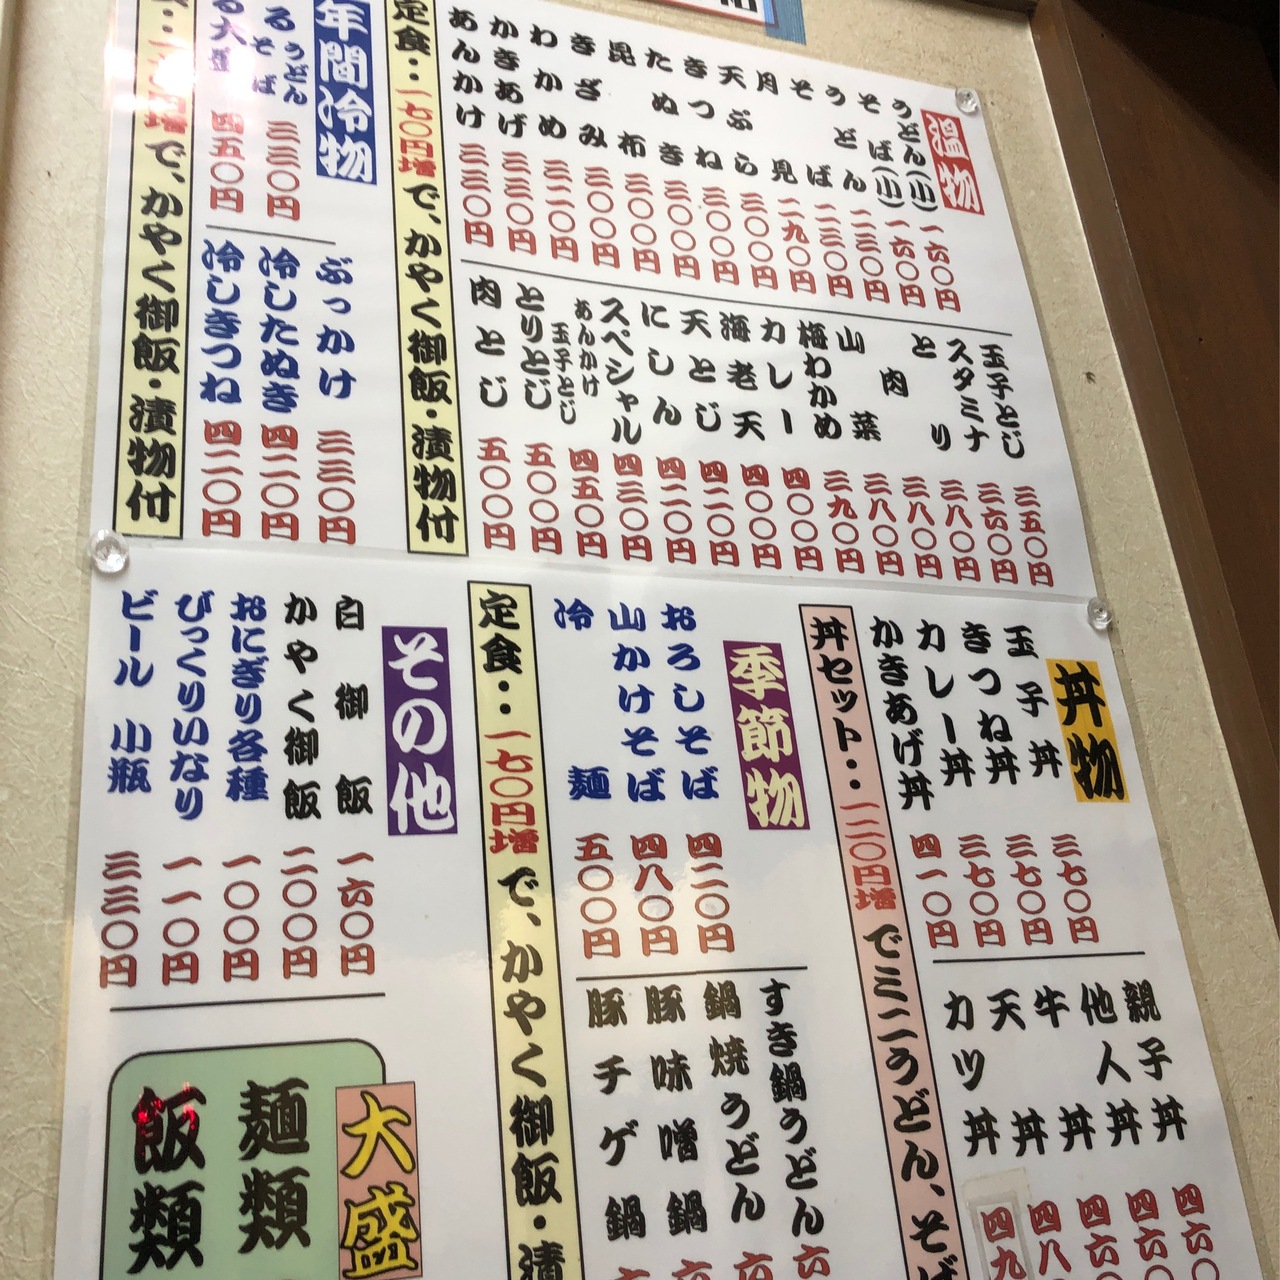 温物
うどん(小) 一六〇円
そば(小) 一六〇円
うどん 二三〇円
そば 二三〇円
月見 二九〇円
天ぷら 三〇〇円
きつね 三〇〇円
たぬき 三〇〇円
昆布 三〇〇円
きざみ 三〇〇円
わかめ 三二〇円
かきあげ 三三〇円
あんかけ 三三〇円
玉子とじ 三五〇円
スタミナ 三六〇円
とり 三八〇円
肉 三八〇円
山菜 三八〇円
梅わかめ 三九〇円
カレー 四〇〇円
海老天 四〇〇円
天とじ 四二〇円
にしん 四二〇円
スペシャル 四三〇円
あんかけ玉子とじ 四五〇円
とりとじ 五〇〇円
肉とじ 五〇〇円
定食‥一七〇円増で、かやく御飯・漬物付
年間冷物
るうどんそば 三三〇円
る大盛 四五〇円
ぶっかけ 三三〇円
冷したぬき 四二〇円
冷しきつね 四二〇円
円増で、かやく御飯・漬物付
丼物
玉子丼 三七〇円
きつね丼 三七〇円
カレー丼 三七〇円
かきあげ丼 四一〇円
親子丼 四六〇
他人丼 四六〇
牛丼 四六
天丼 四八
カツ丼 四九
丼セット‥一二〇円増でミニうどん、そば
季節物
おろしそば 四二〇円
山かけそば 四八〇円
冷麺 五〇〇円
すき鍋うどん 六
鍋焼うどん 六
豚味噌鍋 六
豚チゲ鍋 六
定食‥一七〇円増で、かやく御飯・漬
その他
白御飯 一六〇円
かやく御飯 二〇〇円
おにぎり各種 一〇〇円
びっくりいなり 一一〇円
ビール 小瓶 三三〇円
大盛
麺類
飯類